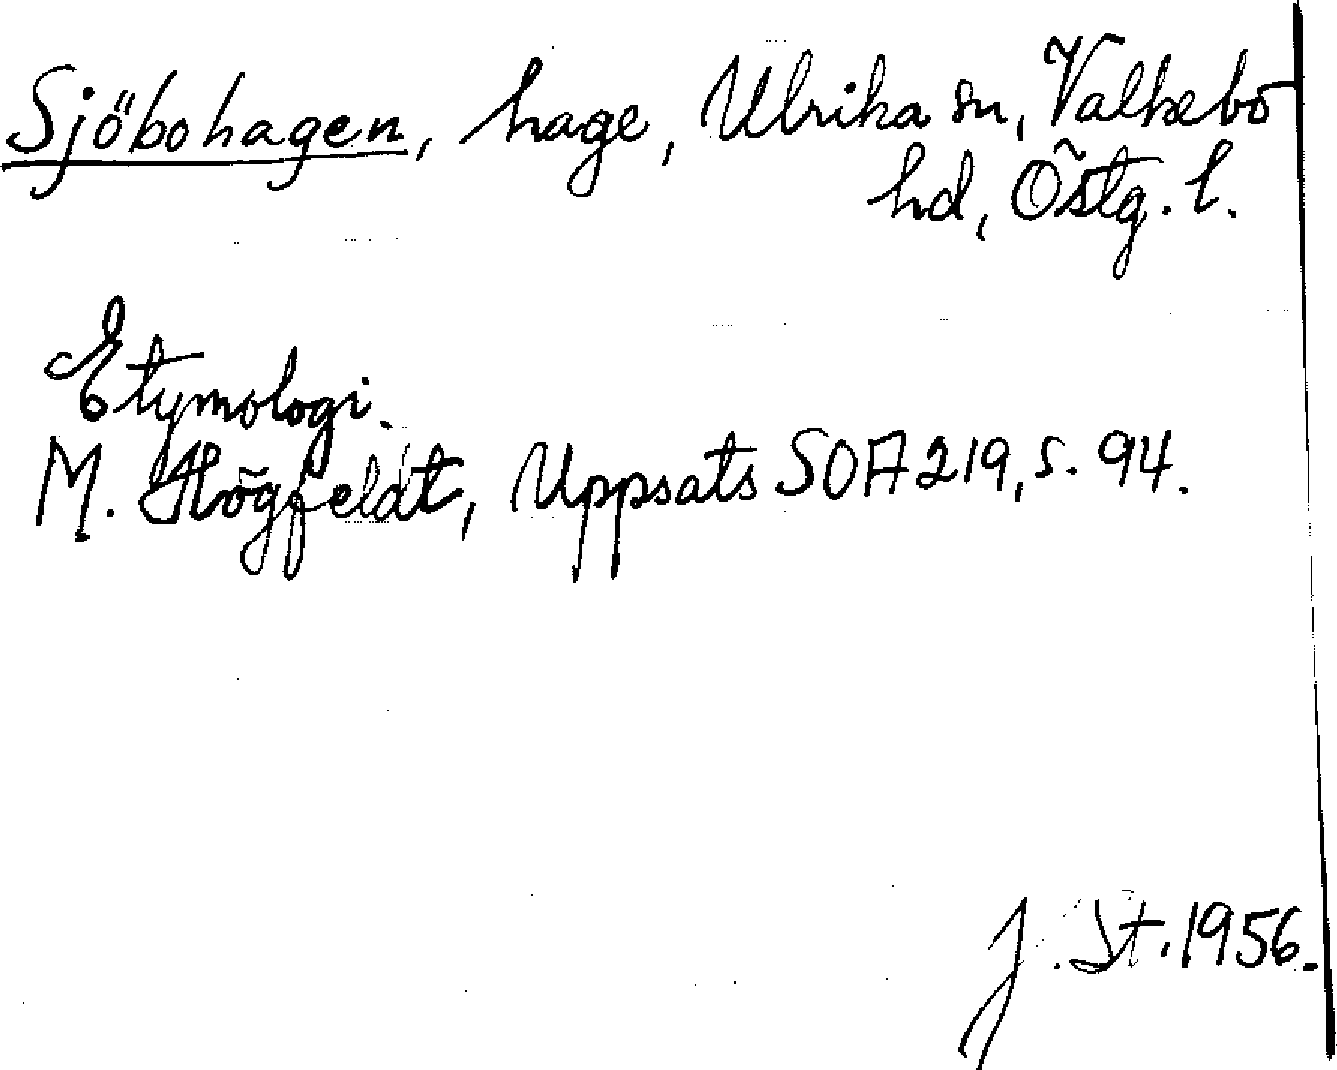 Sjöbohagen, hage, Ulrika sn, Valkebo
hd, Östg. l.
Etymologi.
M. Högfeldt, Uppsats SOA 219, s. 94.
J. St. 1956.